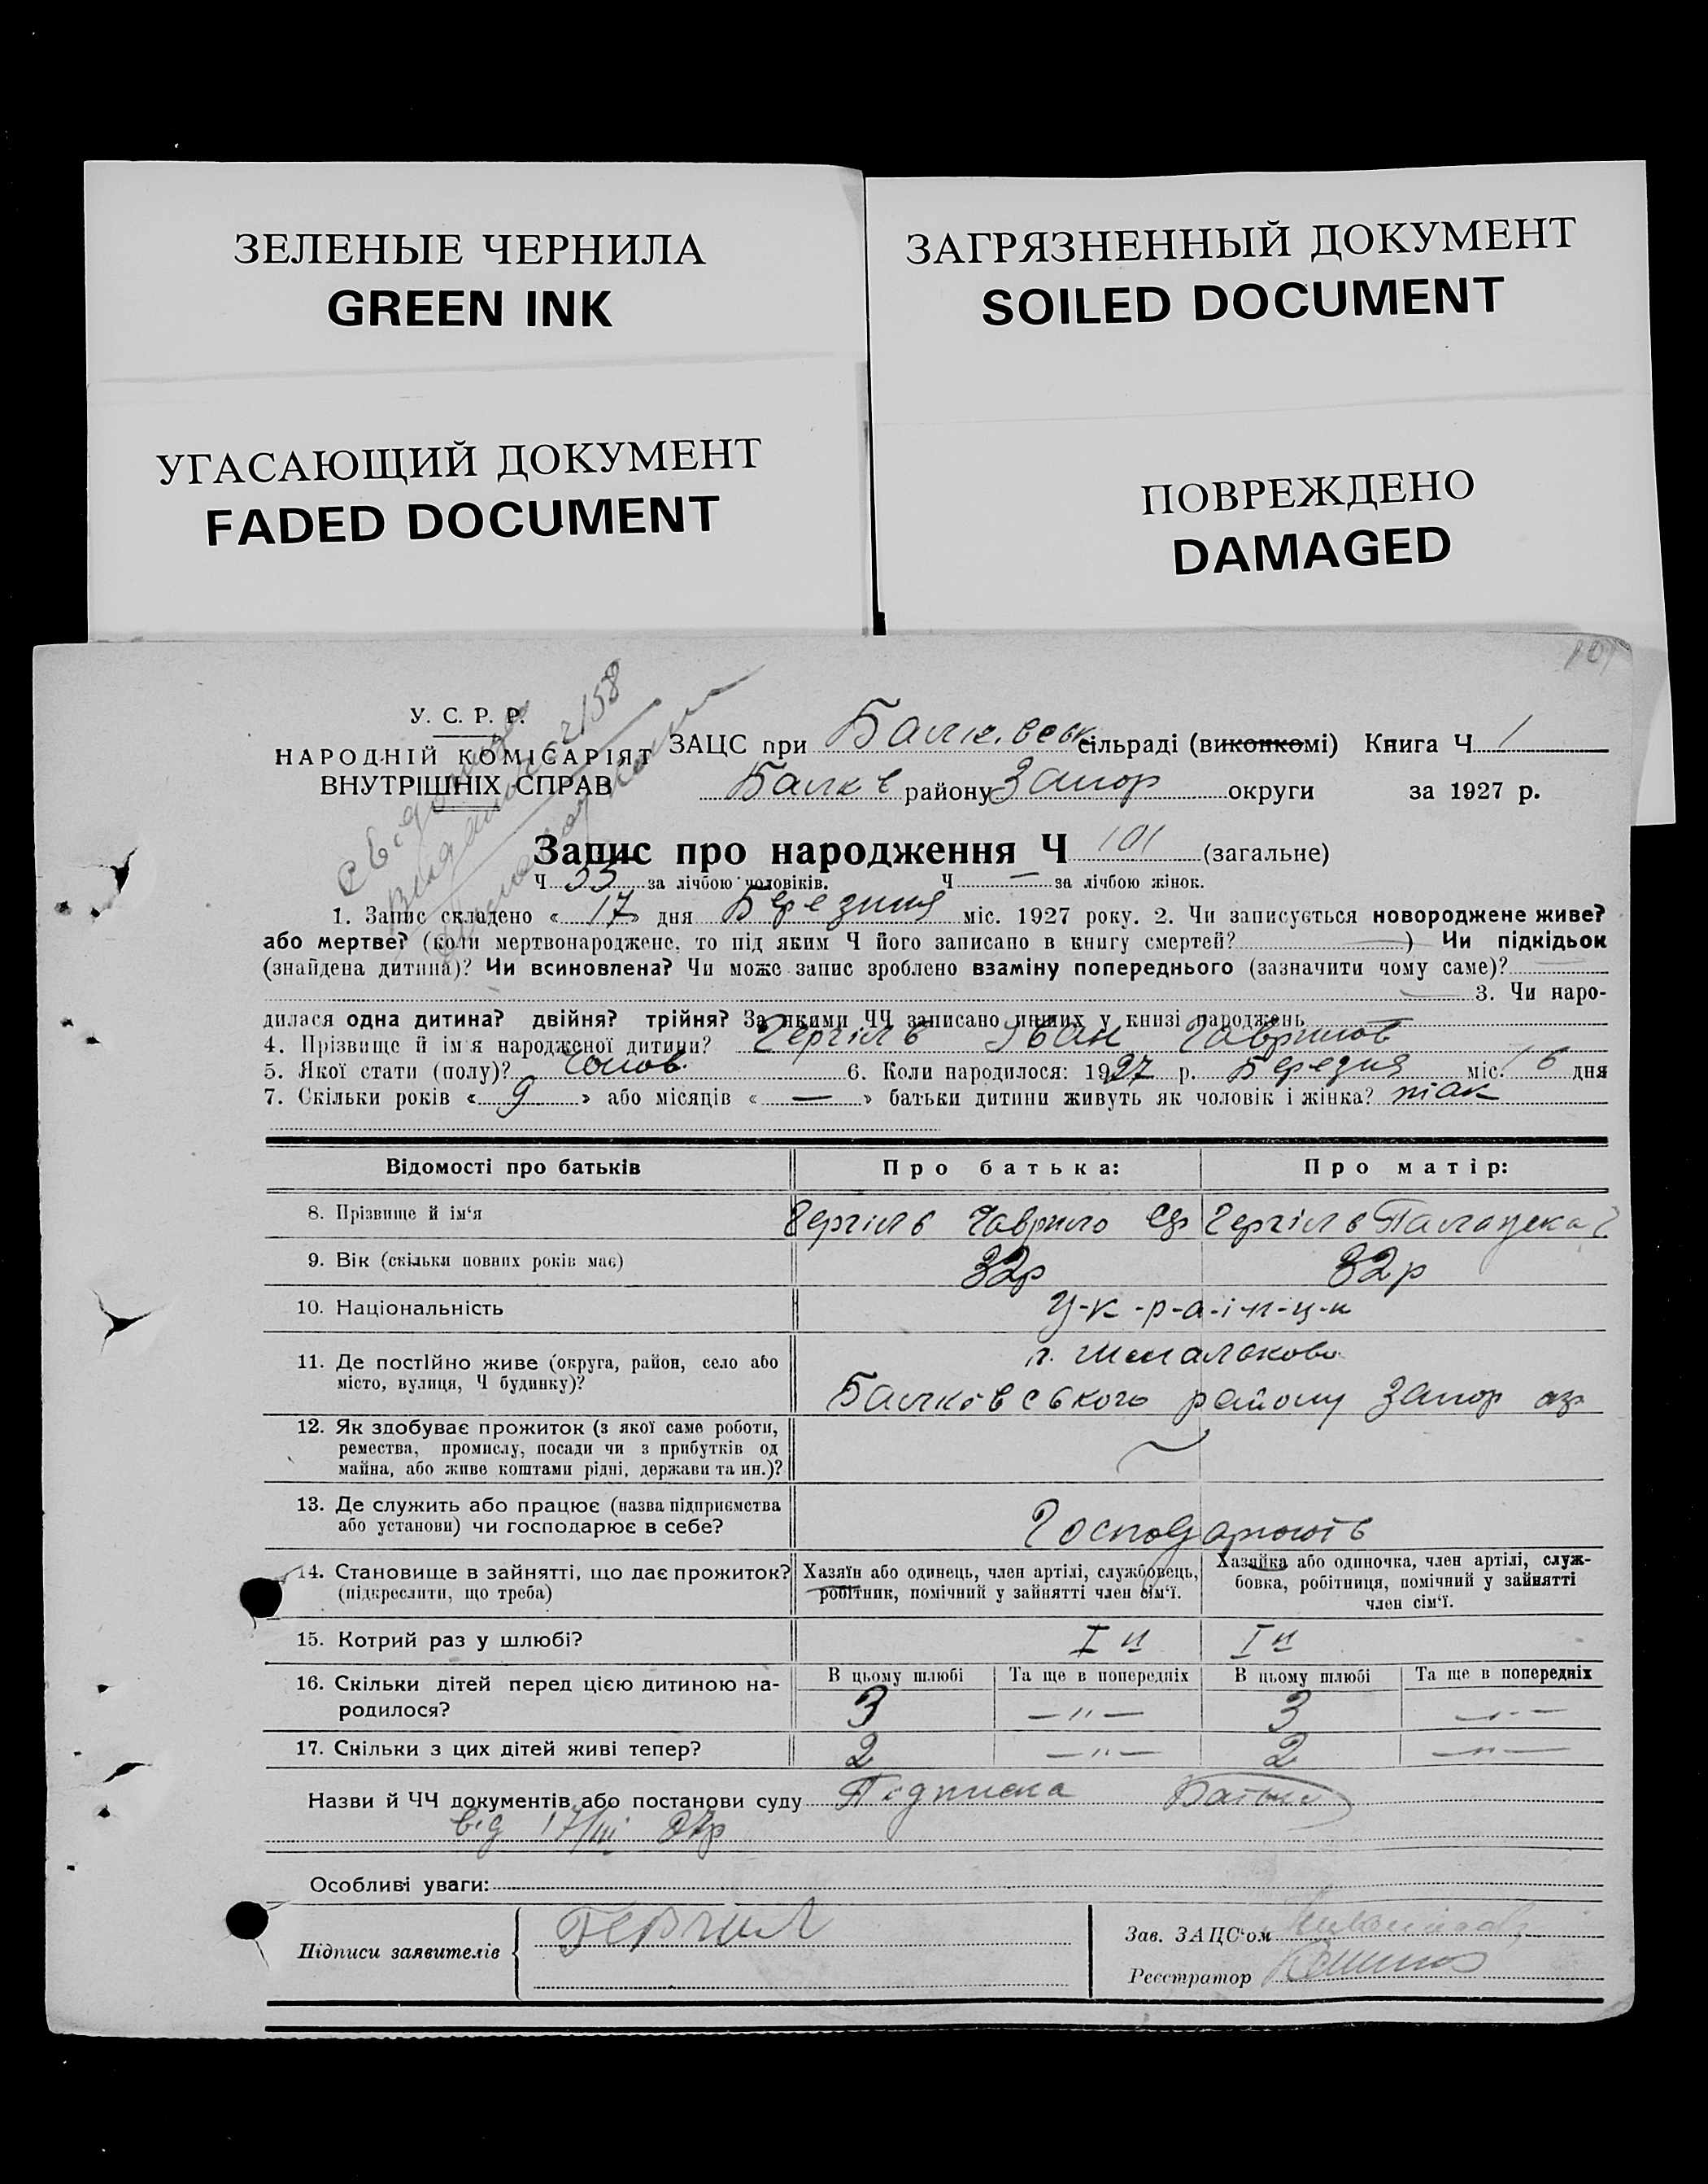 ЗЕЛЕНЫЕ ЧЕРНИЛА
GREEN INK
УГАСАЮЩИЙ ДОКУМЕНТ
FADED DOCUMENT
ЗАГРЯЗНЕННЫЙ ДОКУМЕНТ
SOILED DOCUMENT
ПОВРЕЖДЕНО
DAMAGED
101
У. С. Р. Р.
НАРОДНІЙ КОМІСАРІЯТ
ВНУТРІШНІХ СПРАВ
ЗАЦС при сільраді (виконкомі) Книга Ч 1
Балків району Запор округи за 1927 р.
Запис про народження Ч 101 (загальне)
Ч 53 за лічбою чоловіків. Ч — за лічбою жінок.
1. Запис складено « 17 » дня Березня міс. 1927 року. 2. Чи записується новороджене живе?
або мертве? (коли мертвонароджене, то під яким Ч його записано в книгу смертей? —) Чи підкідьок
(знайдена дитина)? Чи всиновлена? Чи може запис зроблено взаміну попереднього (зазначити чому саме)?
3. Чи наро-
дилася одна дитина? двійня? трійня? За якими ЧЧ записано инших у книзі народжень
4. Прізвище й ім'я народженої дитини? Іван Гаврилов
5. Якої стати (полу)? Чолов. 6. Коли народилося: 1927 р. Березня міс. 16 дня
7. Скільки років « 9 » або місяців « — » батьки дитини живуть як чоловік і жінка? так
Відомості про батьків Про батька: Про матір:
8. Прізвище й ім'я Гаврило
9. Вік (скільки повних років має) 32р 32р
10. Національність У-к-р-а-ї-н-ц-и
11. Де постійно живе (округа, район, село або
місто, вулиця, Ч будинку)?
Балківського району Запор окр
12. Як здобуває прожиток (з якої саме роботи,
ремества, промислу, посади чи з прибутків од
майна, або живе коштами рідні, держави та ин.)?
13. Де служить або працює (назва підприємства
або установи) чи господарює в себе? Господарюють
14. Становище в зайнятті, що дає прожиток?
(підкреслити, що треба)
Хазяїн або одинець, член артілі, службовець,
робітник, помічний у зайнятті член сім'ї.
Хазяйка або одиночка, член артілі, служ-
бовка, робітниця, помічний у зайнятті
член сім'ї.
15. Котрий раз у шлюбі? I й I й
16. Скільки дітей перед цією дитиною на-
родилося?
В цьому шлюбі Та ще в попередніх В цьому шлюбі Та ще в попередніх
3 —〃— 3 —〃—
17. Скільки з цих дітей живі тепер? 2 —〃— 2 —〃—
Назви й ЧЧ документів або постанови суду Підписка Батька
від 17/III 27р
Особливі уваги:
Підписи заявителів
Зав. ЗАЦС'ом
Реєстратор